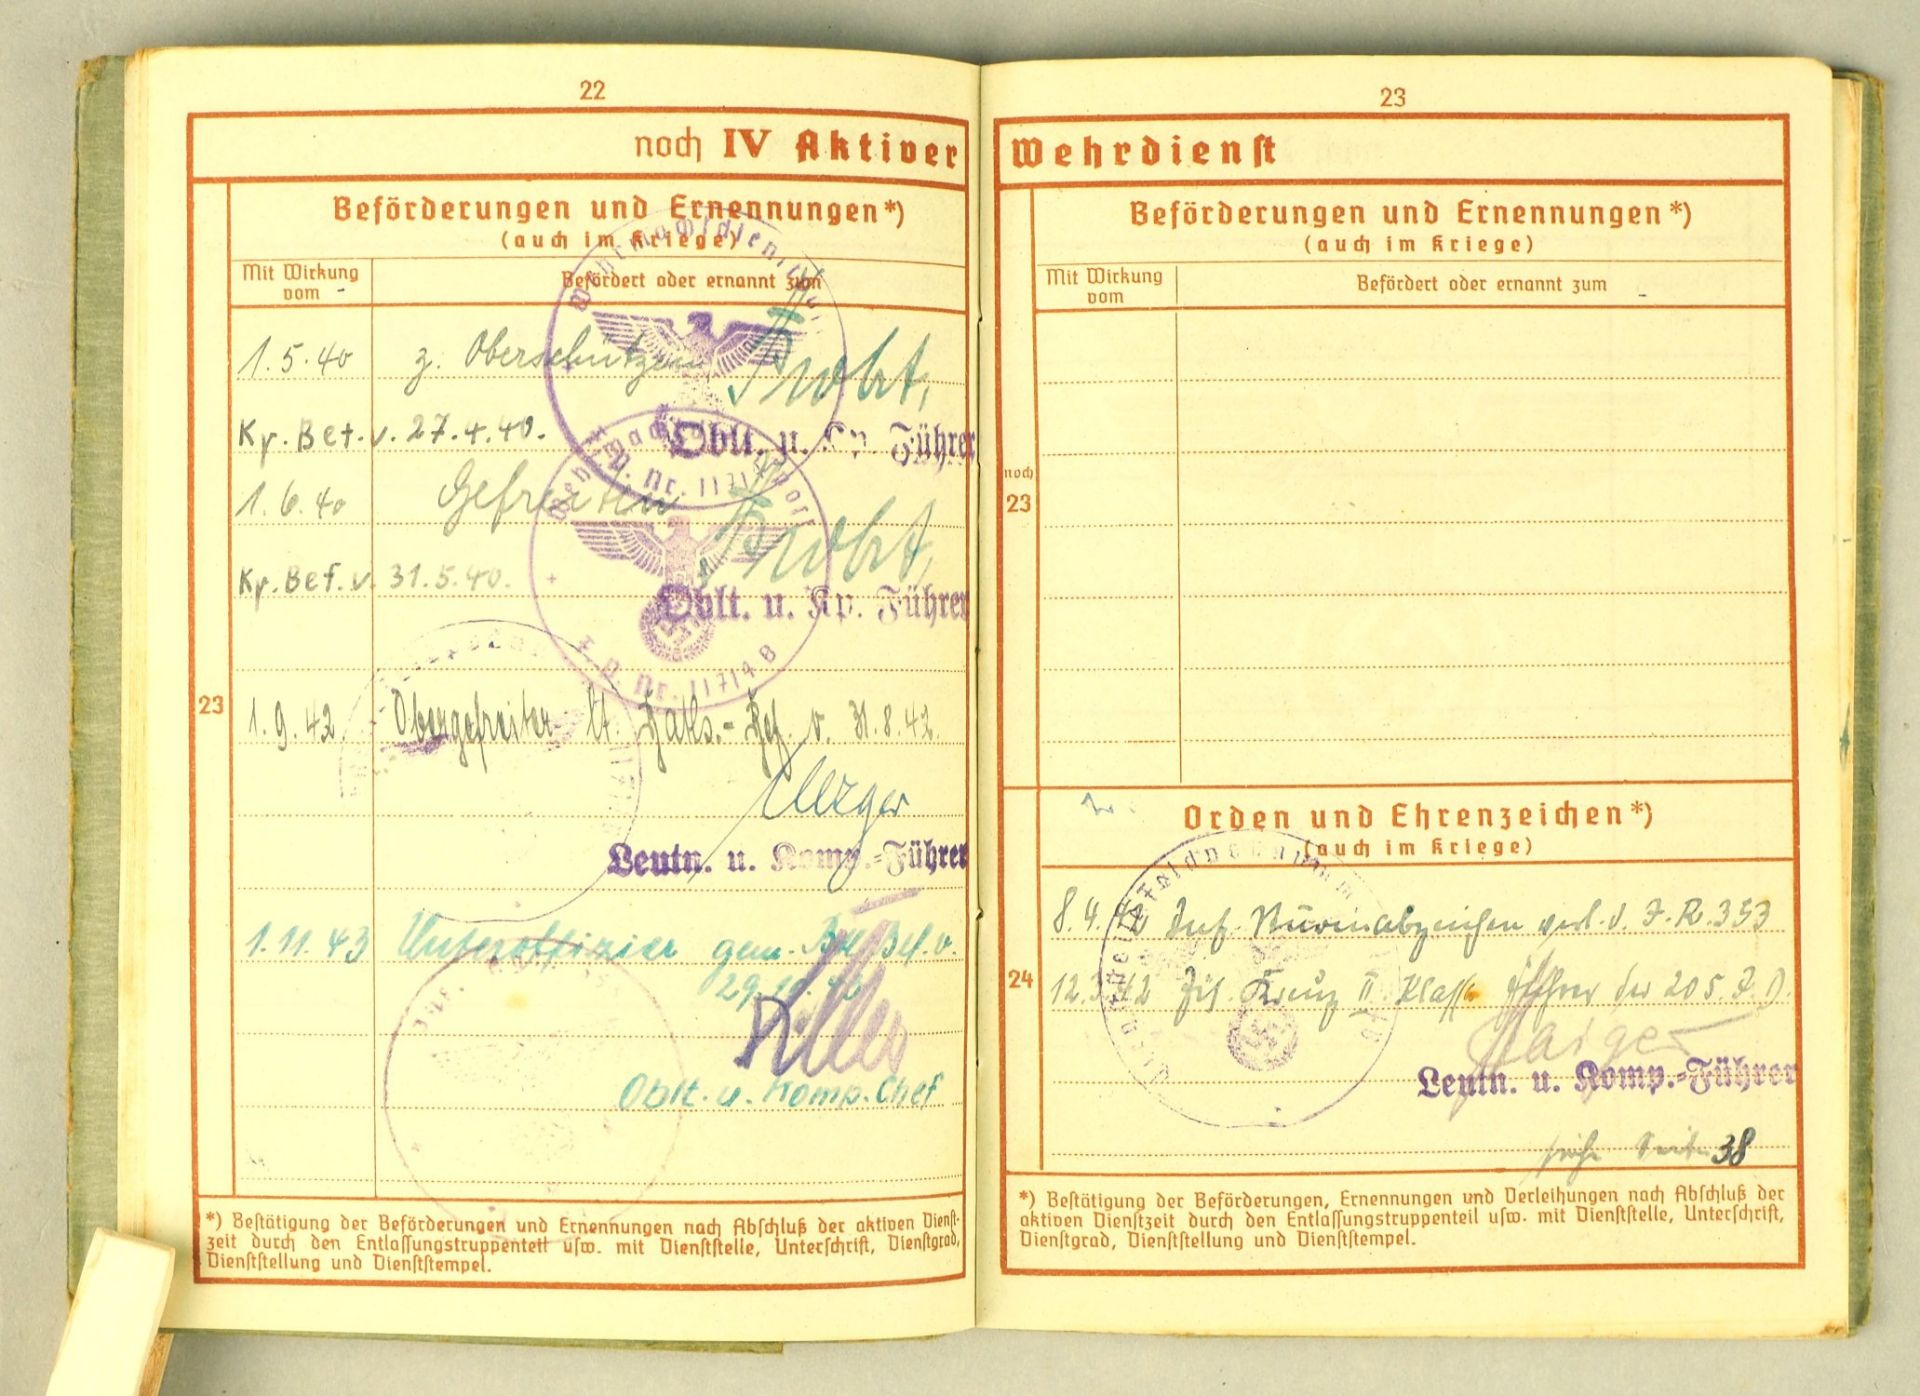 22
noch IV Aktiver
Beförderungen und Ernennungen*)
(auch im Kriege)
Mit Wirkung vom
Befördert oder ernannt zum
1.5.40 z. Oberschützen
Oblt. u. Kp. Führer
Kp. Bef. v. 27.4.40.
1.6.40 Gefreiten
Kp. Bef. v. 31.5.40.
Oblt. u. Kp. Führer
F. P. Nr. 11714 B
23
1.9.42 Obergefreiter lt. Batls.-Bef. v. 31.8.42.
Leutn. u. Komp.-Führer
1.11.43 Unteroffizier gem. Btl. Bef. v.
Oblt. u. Komp. Chef
*) Bestätigung der Beförderungen und Ernennungen nach Abschluß der aktiven Dienst-
zeit durch den Entlassungstruppenteil usw. mit Dienststelle, Unterschrift, Dienstgrad,
Dienststellung und Dienststempel.
23
Wehrdienst
Beförderungen und Ernennungen*)
(auch im Kriege)
Mit Wirkung vom
Befördert oder ernannt zum
noch
23
Orden und Ehrenzeichen*)
(auch im Kriege)
8.4.42 Inf. Sturmabzeichen verl. d. I.R. 353
24
12.3.42 Eis. Kreuz II. Klasse der 205. I.D.
Leutn. u. Komp.-Führer
siehe Seite 38
*) Bestätigung der Beförderungen, Ernennungen und Verleihungen nach Abschluß der
aktiven Dienstzeit durch den Entlassungstruppenteil usw. mit Dienststelle, Unterschrift,
Dienstgrad, Dienststellung und Dienststempel.